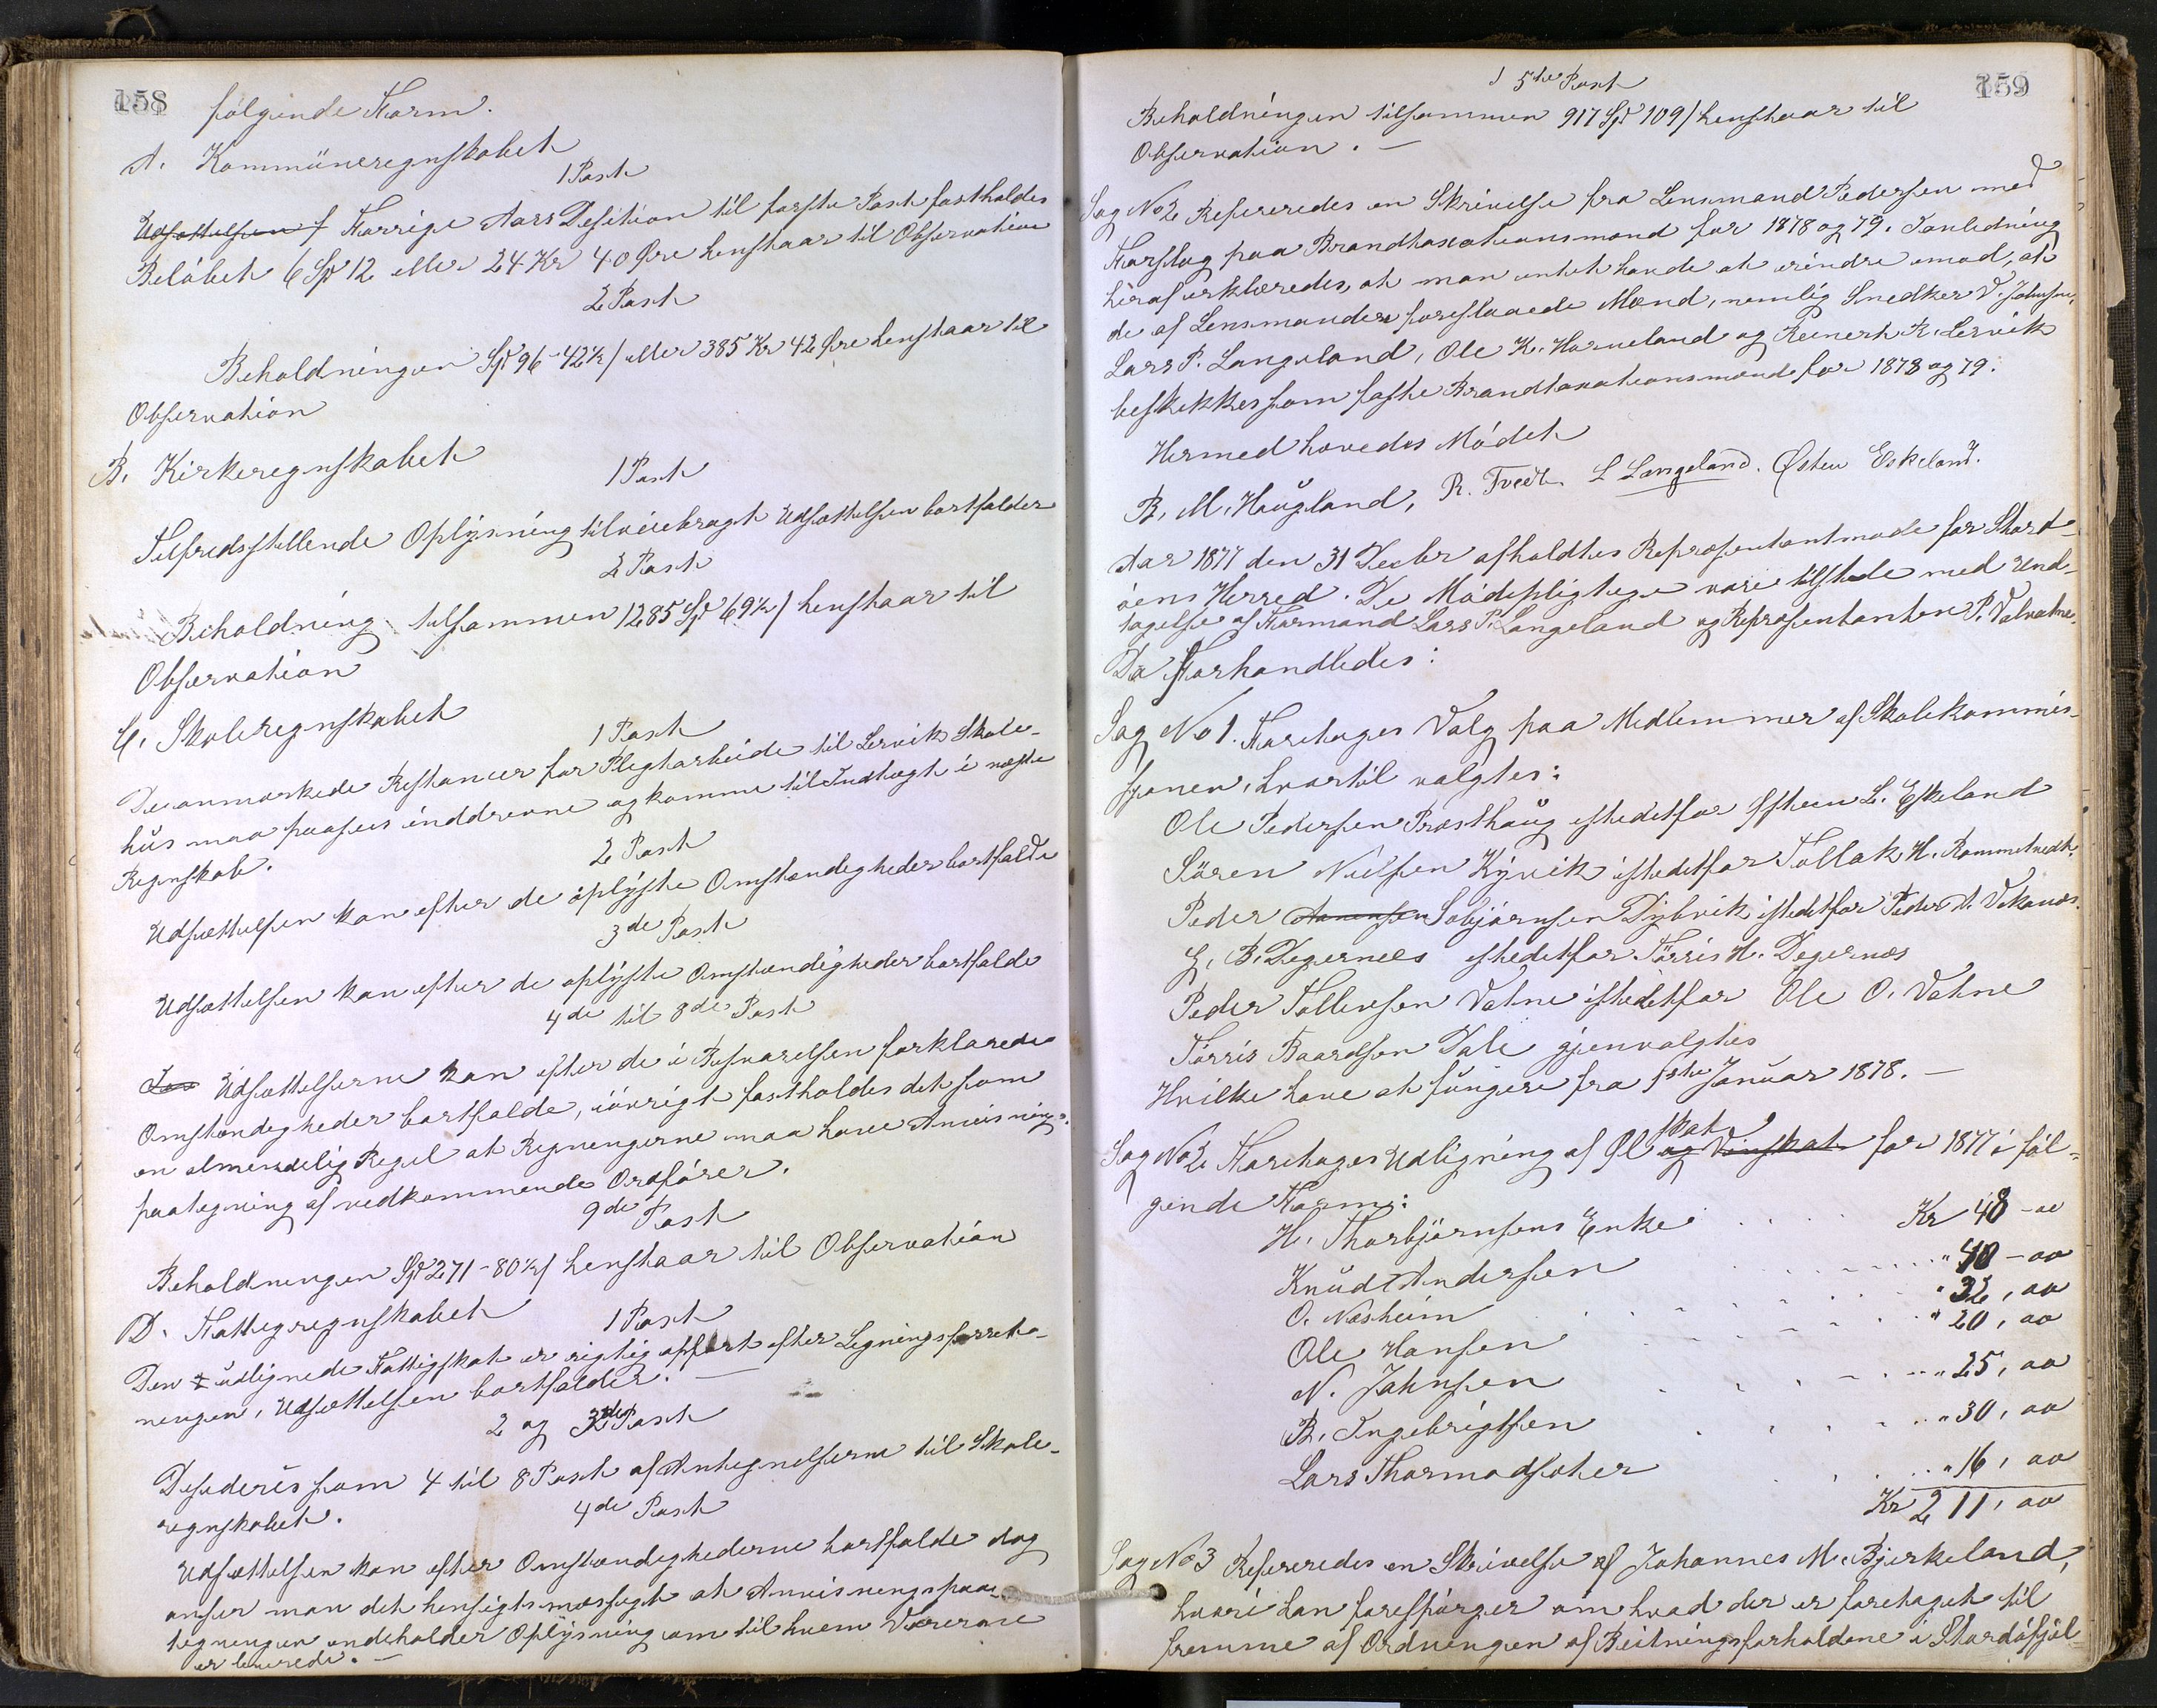 158
følgende Form.
A. Kommüneregnskabet
1 Post
Udsættelsen f Forrige Aars Desition til første Post fastholdes
Beløbet 6 Spd 12 eller 24 Kr 40 Øre henstaar til Observation
2 Post
Beholdningen Spd 96-42½ / eller 385 Kr 42 Øre henstaar til
Observation
B. Kirkeregnskabet
1 Post
Tilfredsstillende Oplysning tilveiebragt Udsættelsen bortfalder
2 Post
Beholdning tilsammen 1285 Spd 69½ / henstaar til
Observation
C. Skoleregnskabet
1 Post
De anmærkede Restancer for Pligtarbeide til Lervik Skole-
hus maa paasees inddrevne og komme til Indtægt i næste
Regnskab.
2 Post
Udsættelsen kan efter de oplyste Omstændigheder bortfalde
3de Post
Udsættelsen kan efter de oplyste Omstændigheder bortfalde
4de til 8de Post
Udsættelserne kan efter de i Besvarelsen forklarede
Omstændigheder bortfalde, iøvrigt fastholdes det som
en almendelig Regel at Regningerne maa have Anvisnings-
paategning af vedkommende Ordfører.
9de Post
Beholdningen Spd 271-80½ / henstaar til Observation
D. Fattigregnskabet
1 Post
Den udlignede Fattigskat er rigtig opført efter Ligningsforret-
ningen, Udsættelsen bortfalder. —
2 og 3de Post
Desideres som 4 til 8 Post af Antegnelserne til Skole-
regnskabet.
4de Post
Udsættelsen kan efter Omstændighederne bortfalde dog
anser man det hensigtsmæssigt at Anvisningspaa-
tegningen indeholder Oplysning om til hvem Varerne
er leverede. —
159
5te Post
Beholdningen tilsammen 917 Spd 109 / henstaar til
Observation. —
Sag No 2 Refereredes en Skrivelse fra Lensmand Pedersen med
Forslag paa Brandtaxationsmænd for 1878 og 79. I anledning
heraf erklæredes, at man intet havde at erindre imod, at
de af Lensmanden foreslaaede Mænd, nemlig Snedker V. Johnsen,
Lars P. Langeland, Ole K. Horneland og Reinert R. Lervik
beskikkes som faste Brandtaxationsmænd for 1878 og 79.
Hermed hævedes Mødet
B. M. Haugland, R. Tvedt. L Langeland. Østen Eskeland.
Aar 1877 den 31 Decbr afholdtes Repræsentantmøde for Stord-
øens Herred. De Mødepligtige vare tilstede med Und-
tagelse af Formand Lars P. Langeland og Repræsentanten P. Valvatne.
Da Forhandledes:
Sag No 1. Foretages Valg paa Medlemmer af Skolekommis-
sjonen, hvortil valgtes:
Ole Pedersen Præsthaug istedetfor Østen L. Eskeland
Søren Nielsen Kyvik istedetfor Tollak H. Rommetvedt.
Peder Aanensen Sobjørnsen Dybvik istedetfor Peder A. Vikanes.
G. B. Digernes istedetfor Tørris H. Digernæs
Peder Tollevsen Vatne istedetfor Ole O. Vatne
Tørris Baardsen Dale gjenvalgtes
Hvilke have at fungere fra 1ste Januar 1878. —
Sag No 2 Foretages Udligning af Øl skat og Vinskat for 1877 i føl-
gende Form:
H. Thorbjørnsens Enke Kr 48-00
Knud Andersen " 40-00
O. Næsheim " 32,00
Ole Hansen " 20,00
N. Johnsen " 25,00
B. Ingebrigtsen " 30,00
Lars Thormodsæter " 16,00
Kr 211,00
Sag No 3 Refereredes en Skrivelse af Johannes M. Bjerkeland,
hvori han forespørger om hvad der er foretaget til
fremme af Ordningen af Beitningsforholdene i Stordøfjel-